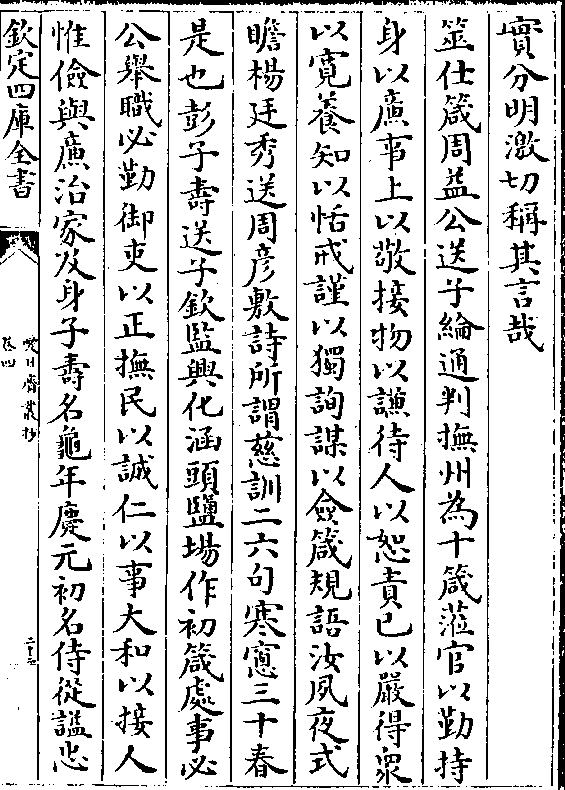 實分明激切稱其言哉
筮仕箴周益公送子綸通判撫州為十箴蒞官以勤持
身以廉事上以敬接物以謙待人以恕責已以嚴得衆
以寛養知以恬戒謹以獨詢謀以僉箴規語汝夙夜式
瞻楊廷秀送周彦敷詩所謂慈訓二六句寒窻三十春
是也彭子壽送子欽監興化涵頭鹽場作初箴處事必
公舉職必勤御吏以正撫民以誠仁以事大和以接人
惟儉與廉治家及身子壽名龜年慶元初名侍從諡忠
欽定四庫全書
愛日齋叢抄
卷四